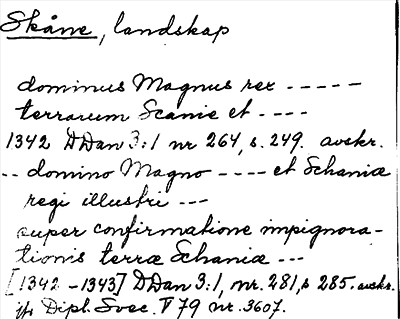 Skåne, landskap
dominus Magnus rex -----
terrarum Scanie et ----
1342 DDan 3:1 nr 264, s. 249. avskr.
-- domino Magno ---- et Schaniæ
regi illustri ---
super confirmatione impignora-
tionis terræ Schaniæ ---
[1342-1343] DDan 3:1, nr. 281, s 285. avskr.
jfr Dipl. Svec. V 79 nr. 3607.